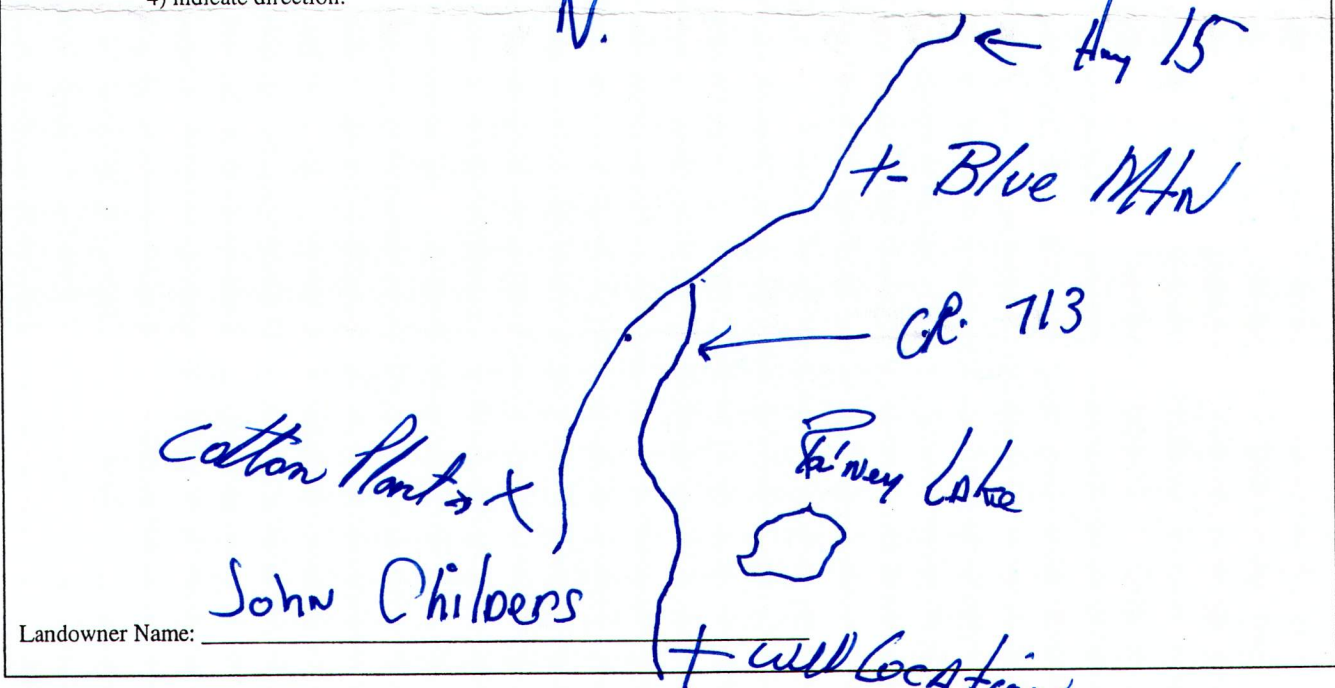 4) Indicate direction.
N.
Hwy 15
Blue Mtn
CR. 713
Cotton Plant
Lake
John Childers
Landowner Name:
Well Location